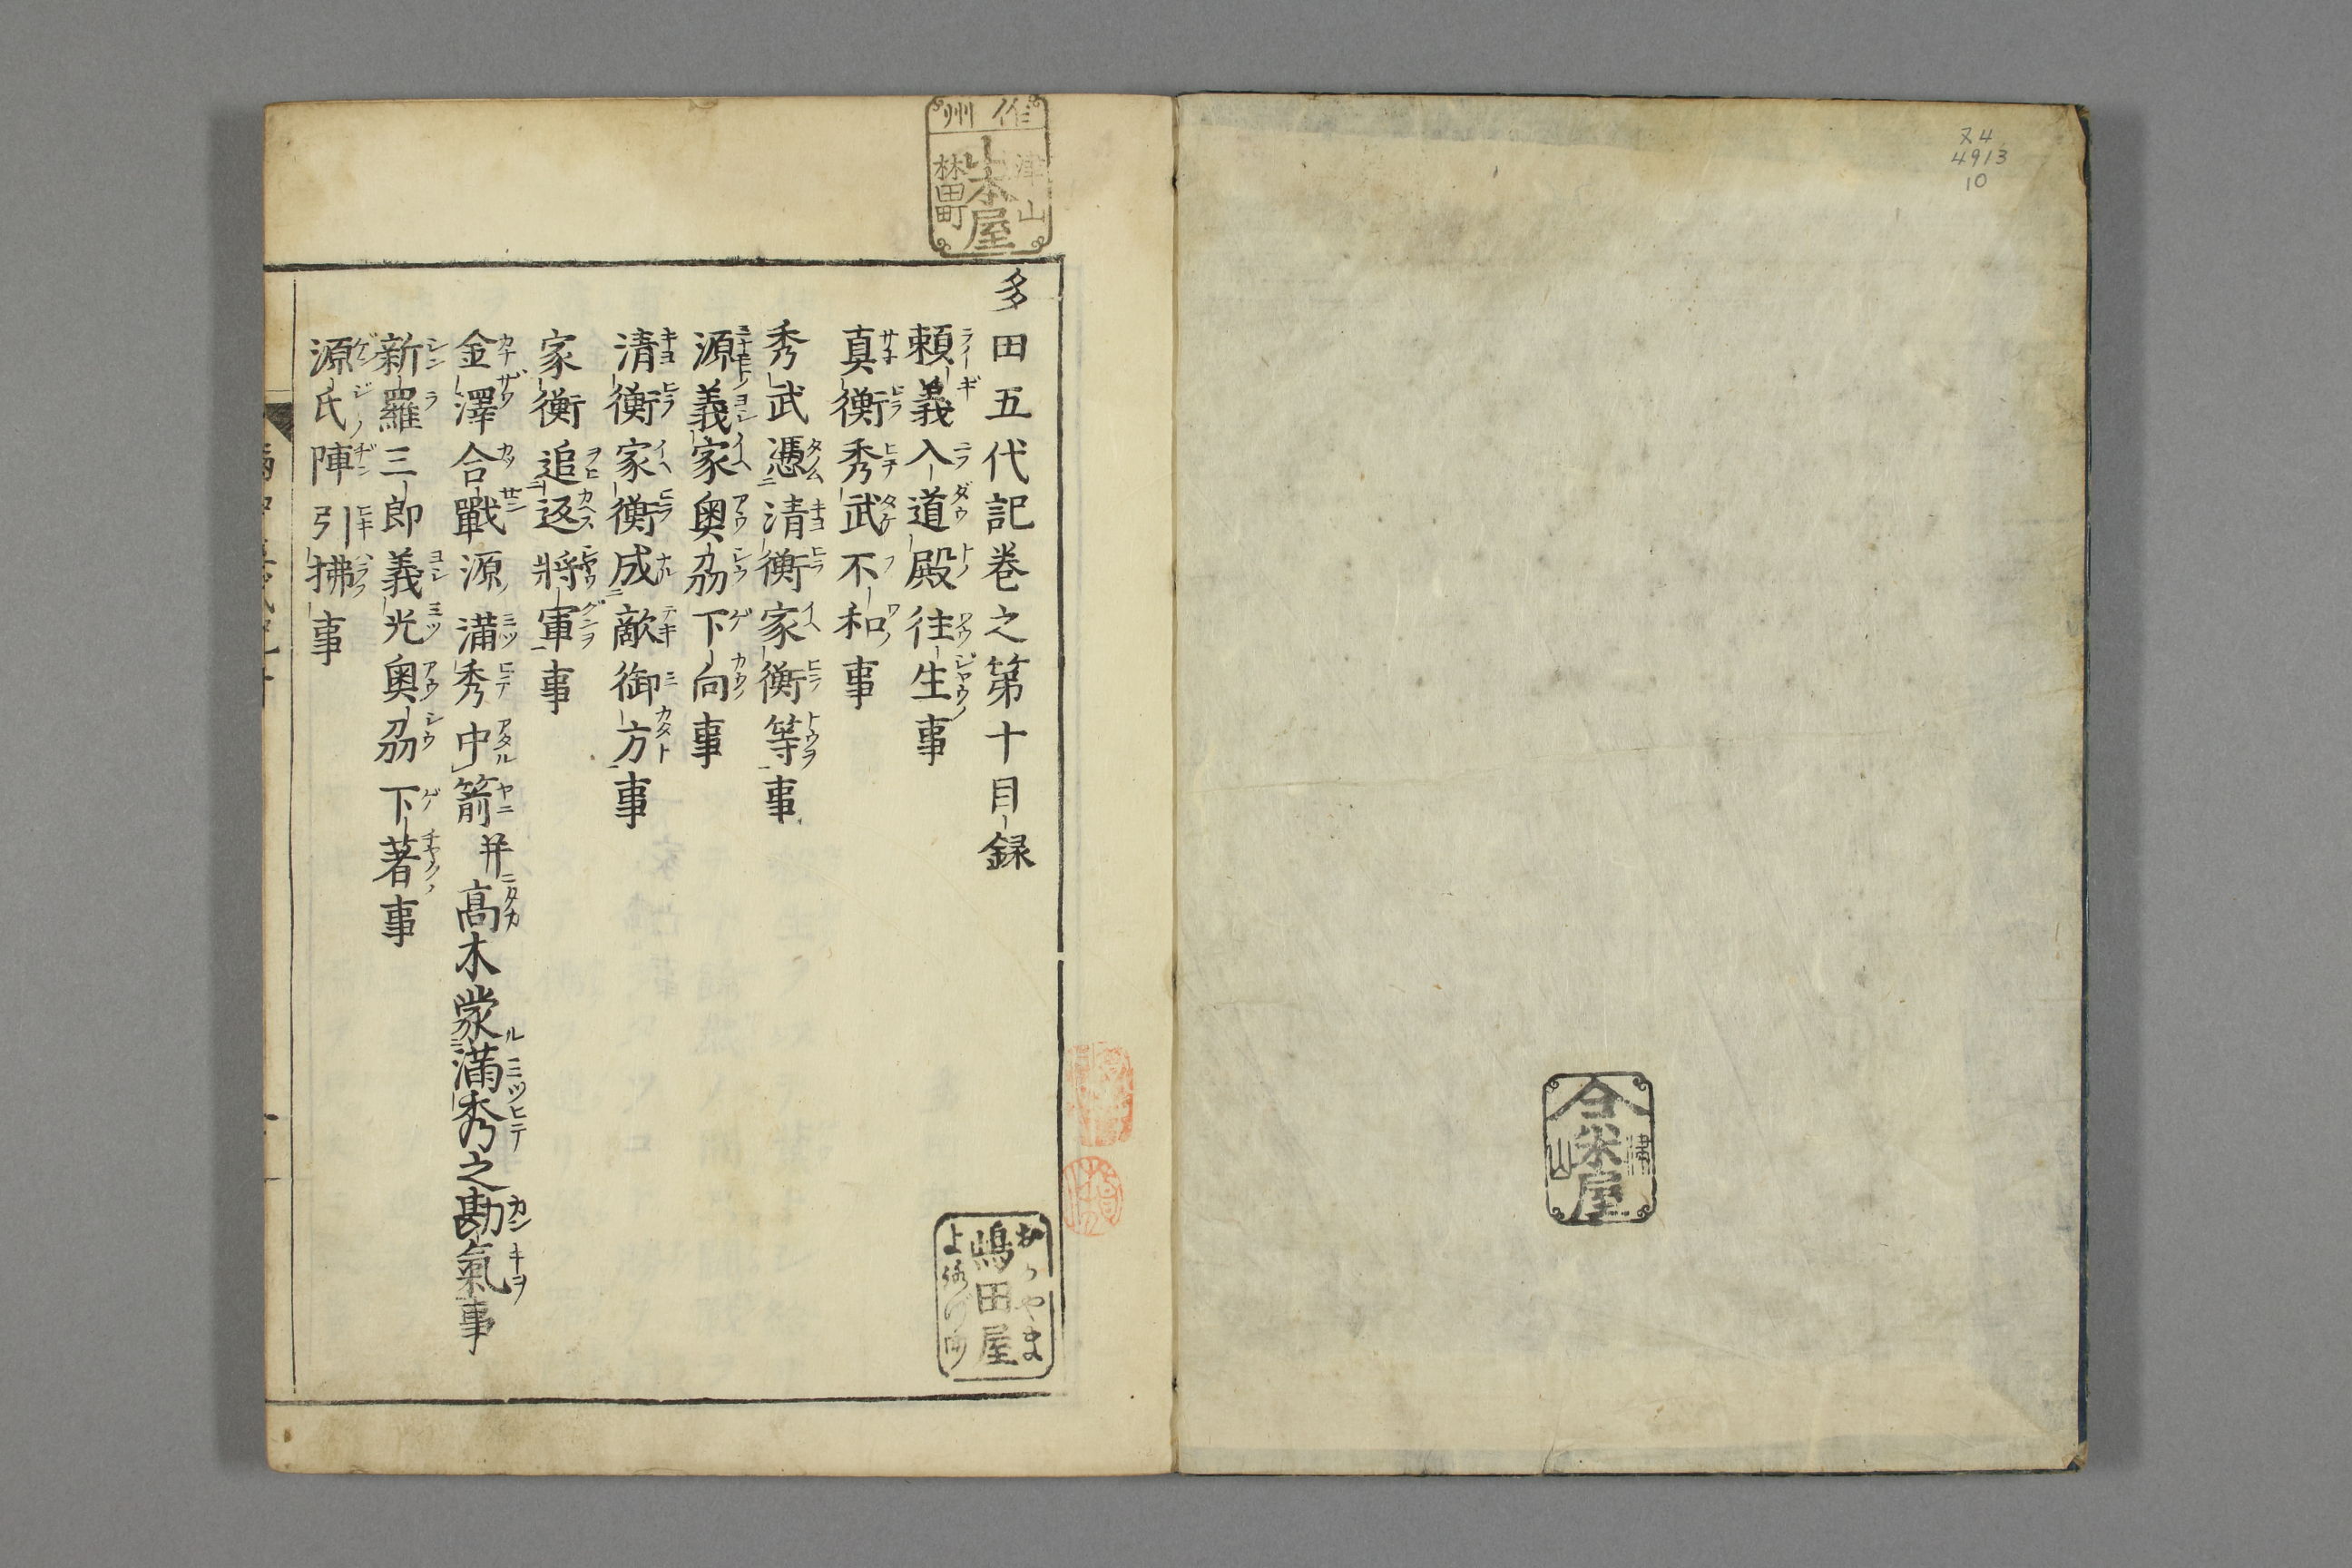 74
4913
10
津山
米屋
作州
津山
山本屋
林田町
多田五代記巻之第十目録
頼義入道殿往生事
真衡秀武不和事
秀武憑清衡家衡等事
源義家奥刕下向事
清衡家衡成敵御方事
家衡追返將軍事
金澤合戰源満秀中箭并高木蒙満秀之勘氣事
新羅三郎義光奥刕下著事
源氏陣引拂事
嶋田屋